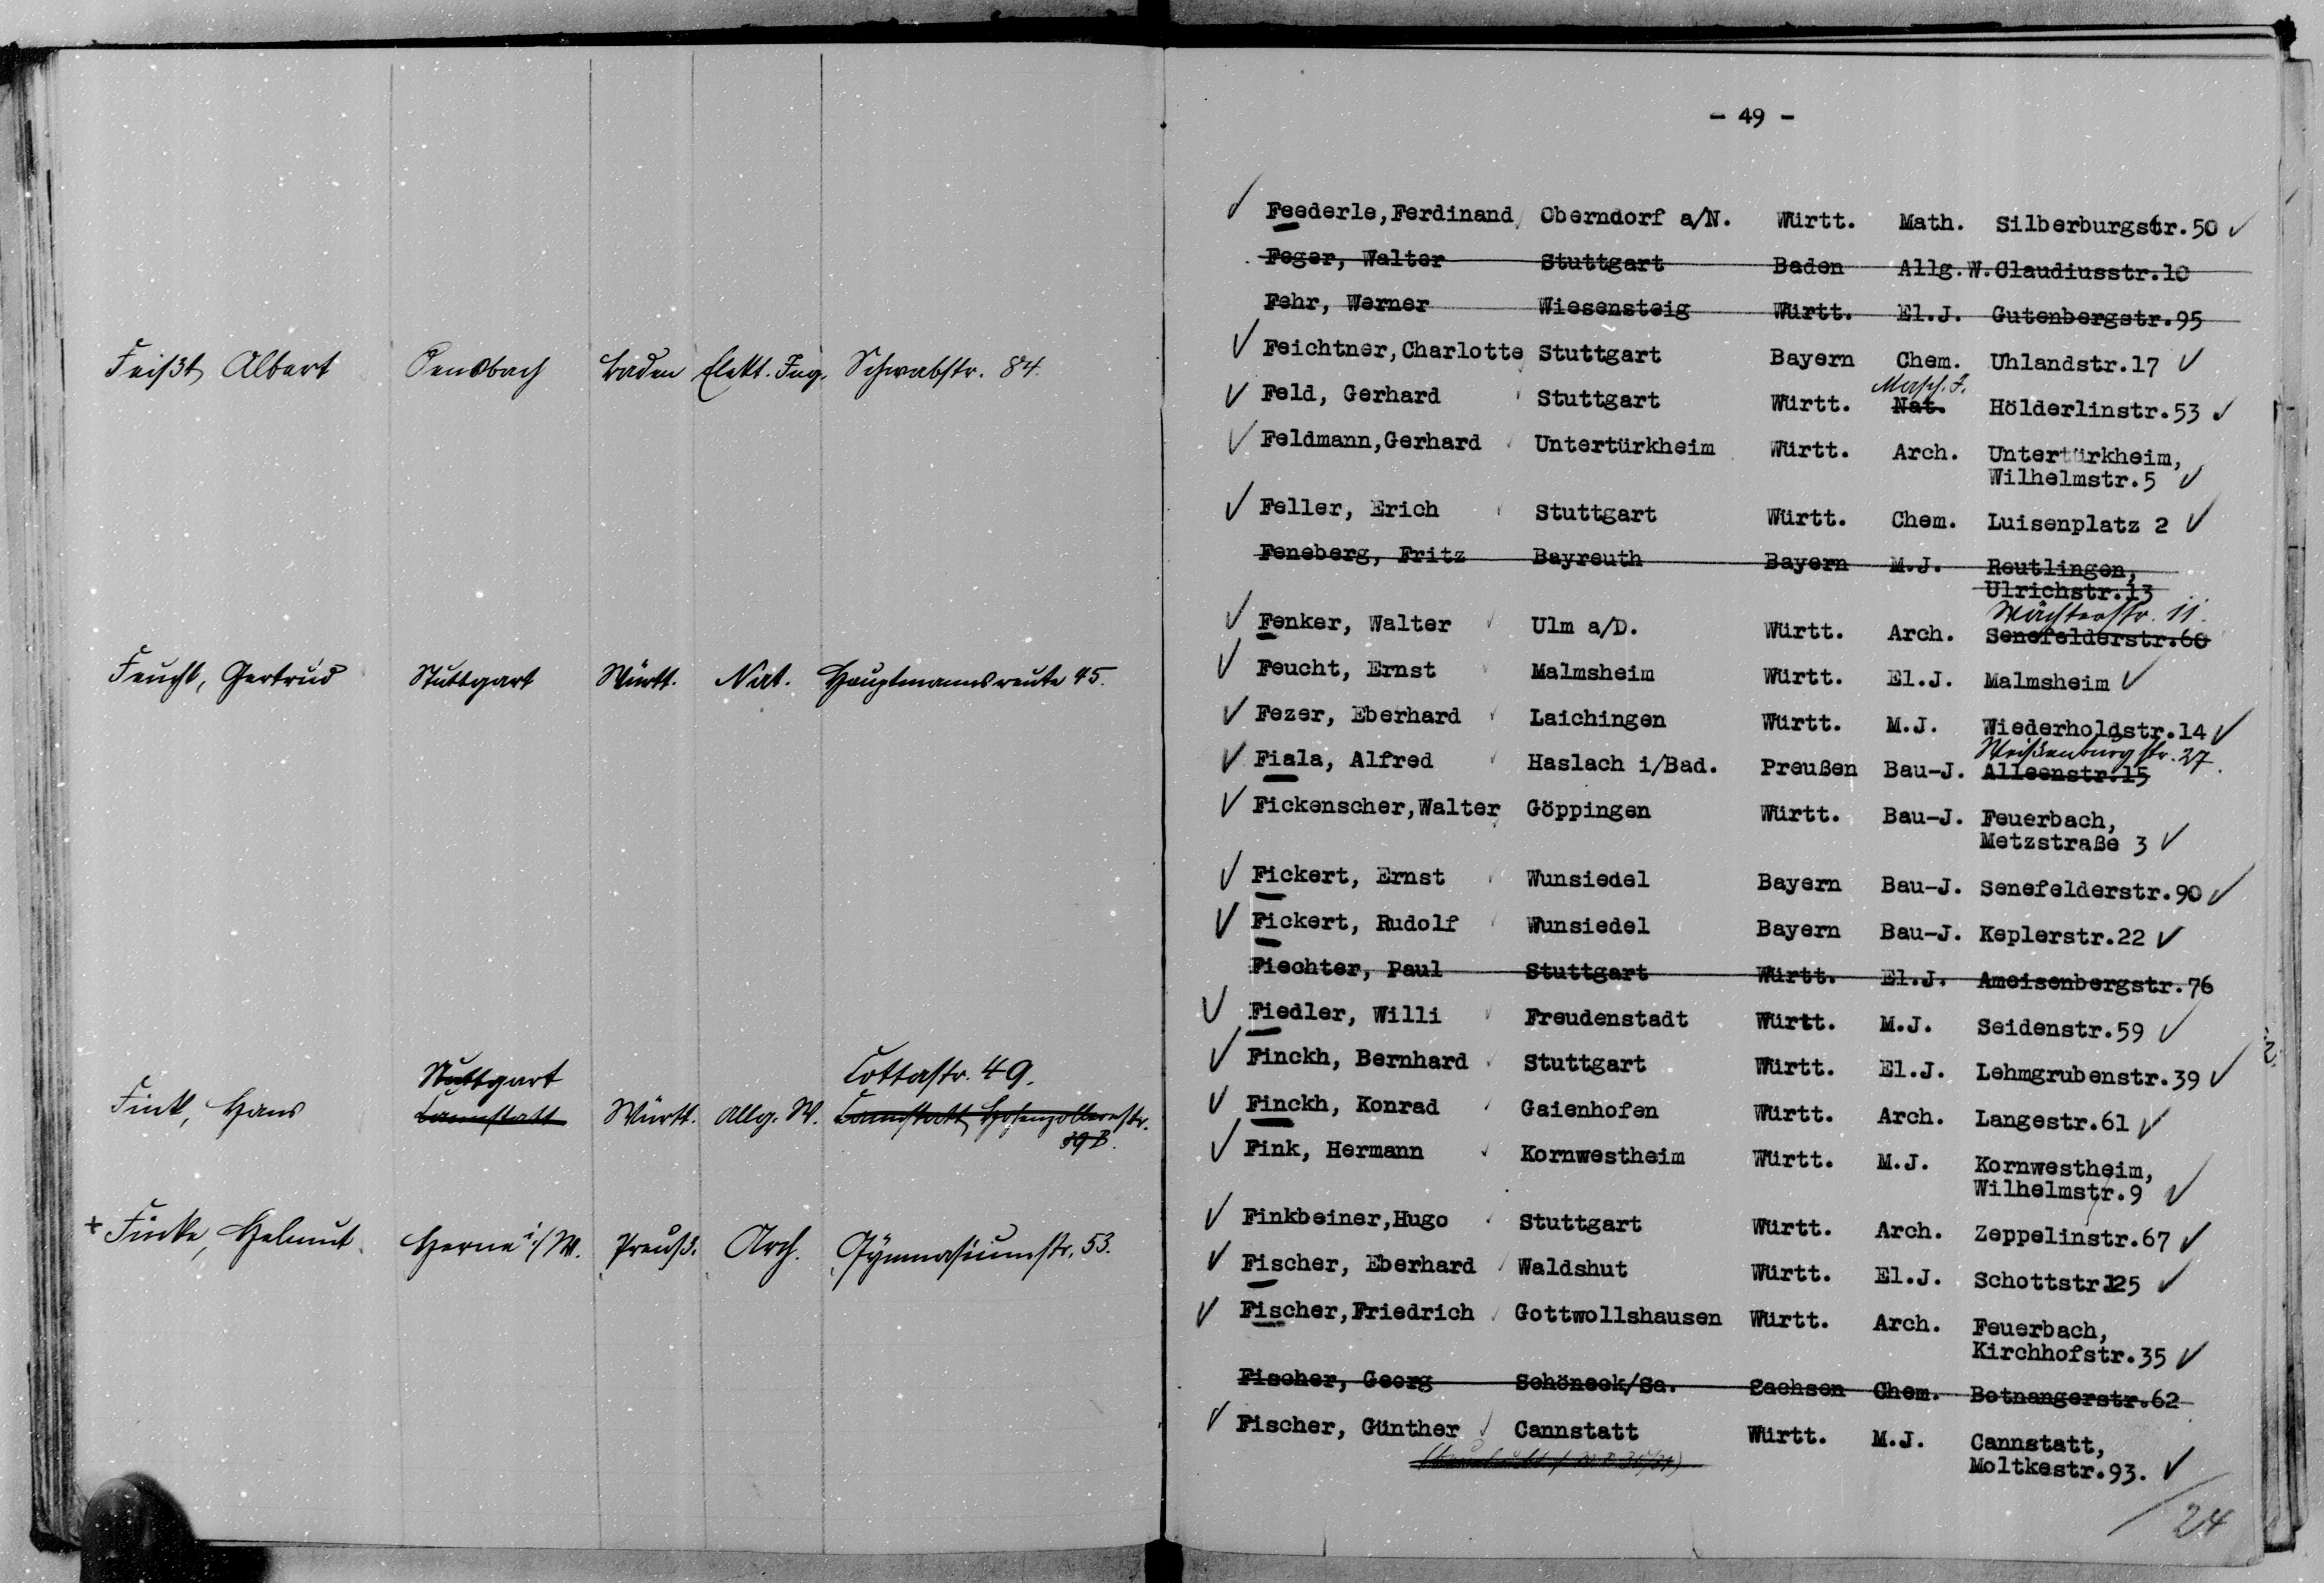 Feißt, Albert Oensbach Baden Elekt. Ing. Schwabstr. 84.
Feucht, Gertrud Stuttgart Württ. Nat. Hauptmannsreute 45.
Stuttgart Cottastr. 49.
Fink, Hans Cannstatt Württ. Allg. W. Cannstatt, Hohenzollernstr.
19B.
+ Finke, Helmut Herne i/W. Preuß. Arch. Gymnasiumstr. 53.
- 49 -
Feederle, Ferdinand Oberndorf a/N. Württ. Math. Silberburgstr.50
Feger, Walter Stuttgart Baden Allg.W. Claudiusstr.10
Fehr, Werner Wiesensteig Württ. El.J. Gutenbergstr.95
Feichtner, Charlotte Stuttgart Bayern Chem. Uhlandstr.17
Masch. I.
Feld, Gerhard Stuttgart Württ. Nat. Hölderlinstr.53
Feldmann, Gerhard Untertürkheim Württ. Arch. Untertürkheim,
Wilhelmstr.5
Feller, Erich Stuttgart Württ. Chem. Luisenplatz 2
Feneberg, Fritz Bayreuth Bayern M.J. Reutlingen,
Ulrichstr.13
Wächterstr. 11.
Fenker, Walter Ulm a/D. Württ. Arch. Senefelderstr.60
Feucht, Ernst Malmsheim Württ. El.J. Malmsheim
Fezer, Eberhard Laichingen Württ. M.J. Wiederholdstr.14
Weißenburgstr. 27.
Fiala, Alfred Haslach i/Bad. Preußen Bau-J. Alleenstr.15
Fickenscher, Walter Göppingen Württ. Bau-J. Feuerbach,
Metzstraße 3
Fickert, Ernst Wunsiedel Bayern Bau-J. Senefelderstr.90
Fickert, Rudolf Wunsiedel Bayern Bau-J. Keplerstr.22
Fiechter, Paul Stuttgart Württ. El.J. Ameisenbergstr.76
Fiedler, Willi Freudenstadt Württ. M.J. Seidenstr.59
Finckh, Bernhard Stuttgart Württ. El.J. Lehmgrubenstr.39
Finckh, Konrad Gaienhofen Württ. Arch. Langestr.61
Fink, Hermann Kornwestheim Württ. M.J. Kornwestheim,
Wilhelmstr.9
Finkbeiner, Hugo Stuttgart Württ. Arch. Zeppelinstr.67
Fischer, Eberhard Waldshut Württ. El.J. Schottstr.125
Fischer, Friedrich Gottwollshausen Württ. Arch. Feuerbach,
Kirchhofstr.35
Fischer, Georg Schöneck/Sa. Sachsen Chem. Botnangerstr.62
Fischer, Günther Cannstatt Württ. M.J. Cannstatt,
Moltkestr.93.
24